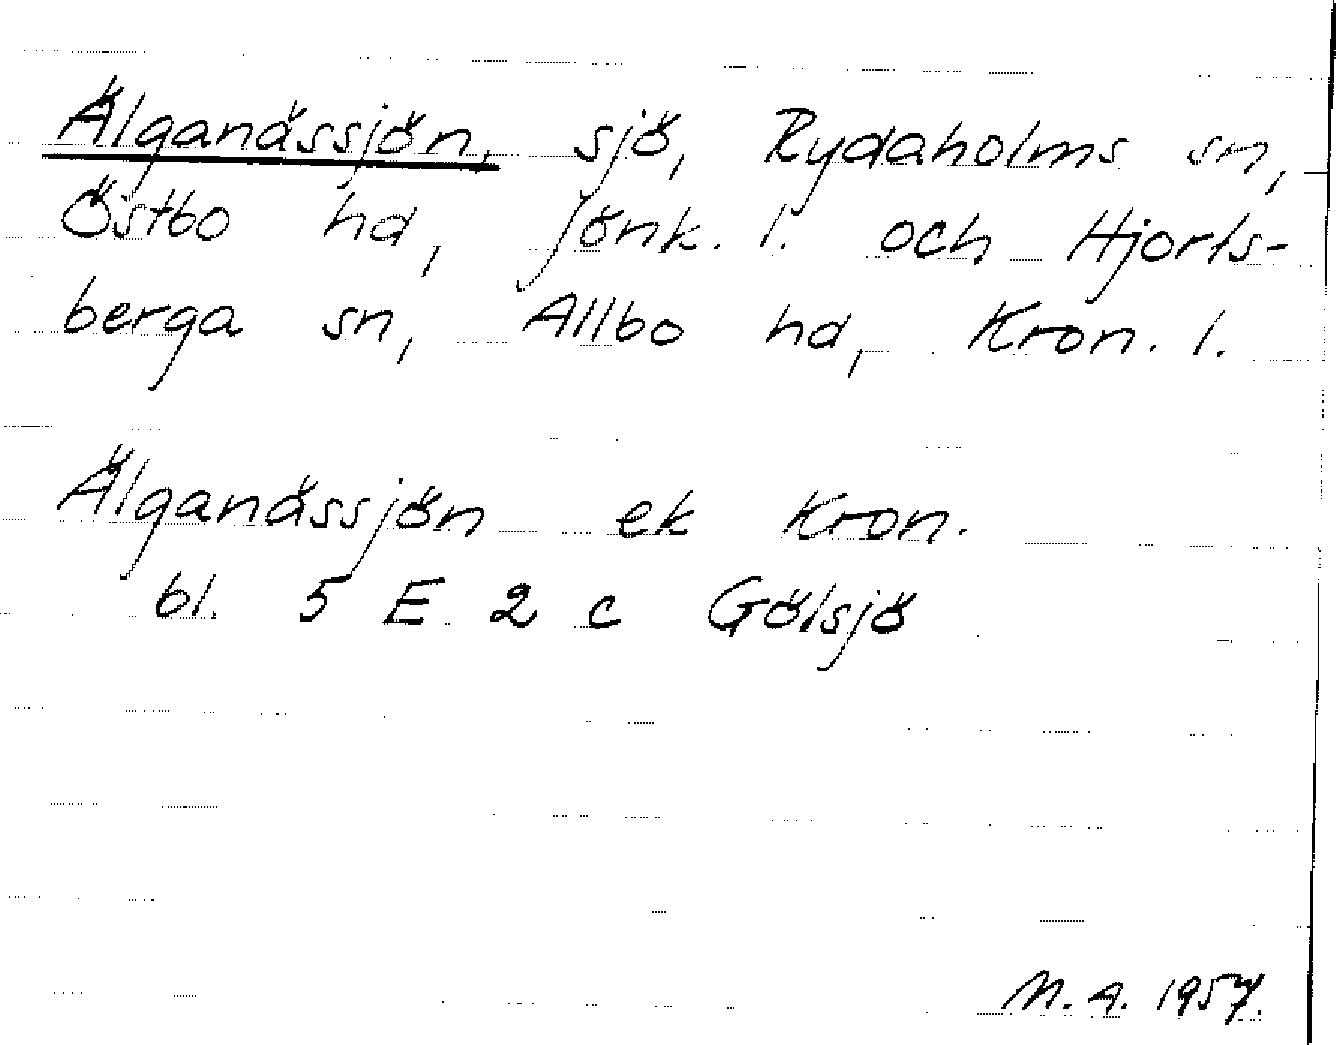 Älganässjön, sjö, Rydaholms sn,
Östbo hd, Jönk. l. och Hjorts-
berga sn, Allbo hd, Kron. l.
Älganässjön ek Kron.
bl. 5 E 2 c Gölsjö
M. A. 1957.